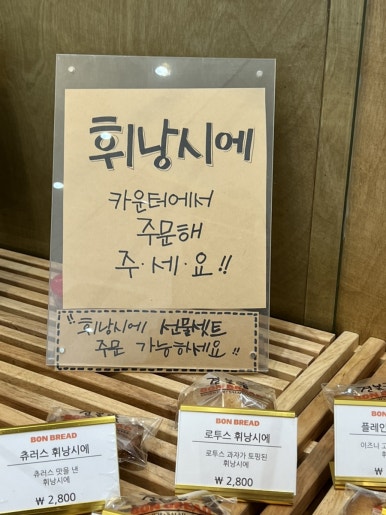 휘낭시에
카운터에서
주문해
주·세·요!!
휘낭시에 선물세트
주문 가능하세요!!
BON BREAD
츄러스 휘낭시에
츄러스 맛을 낸
휘낭시에
₩ 2,800
BON BREAD
로투스 휘낭시에
로투스 과자가 토핑된
휘낭시에
₩ 2,800
BON
플레인
이즈니
₩ 2,800